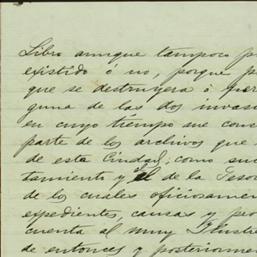 Libro aunque tampoco p
existido ó no, porque p
que se destruyera ó quer
guna de las dos invas
en cuyo tiempo me cons
parte de los archivos que
de esta Ciudad, como suc
tamiento y el de la Teso
de los cuales oficiosamen
expedientes, causas y pro
cuenta al muy Ilustre
de entonces y posteriorme